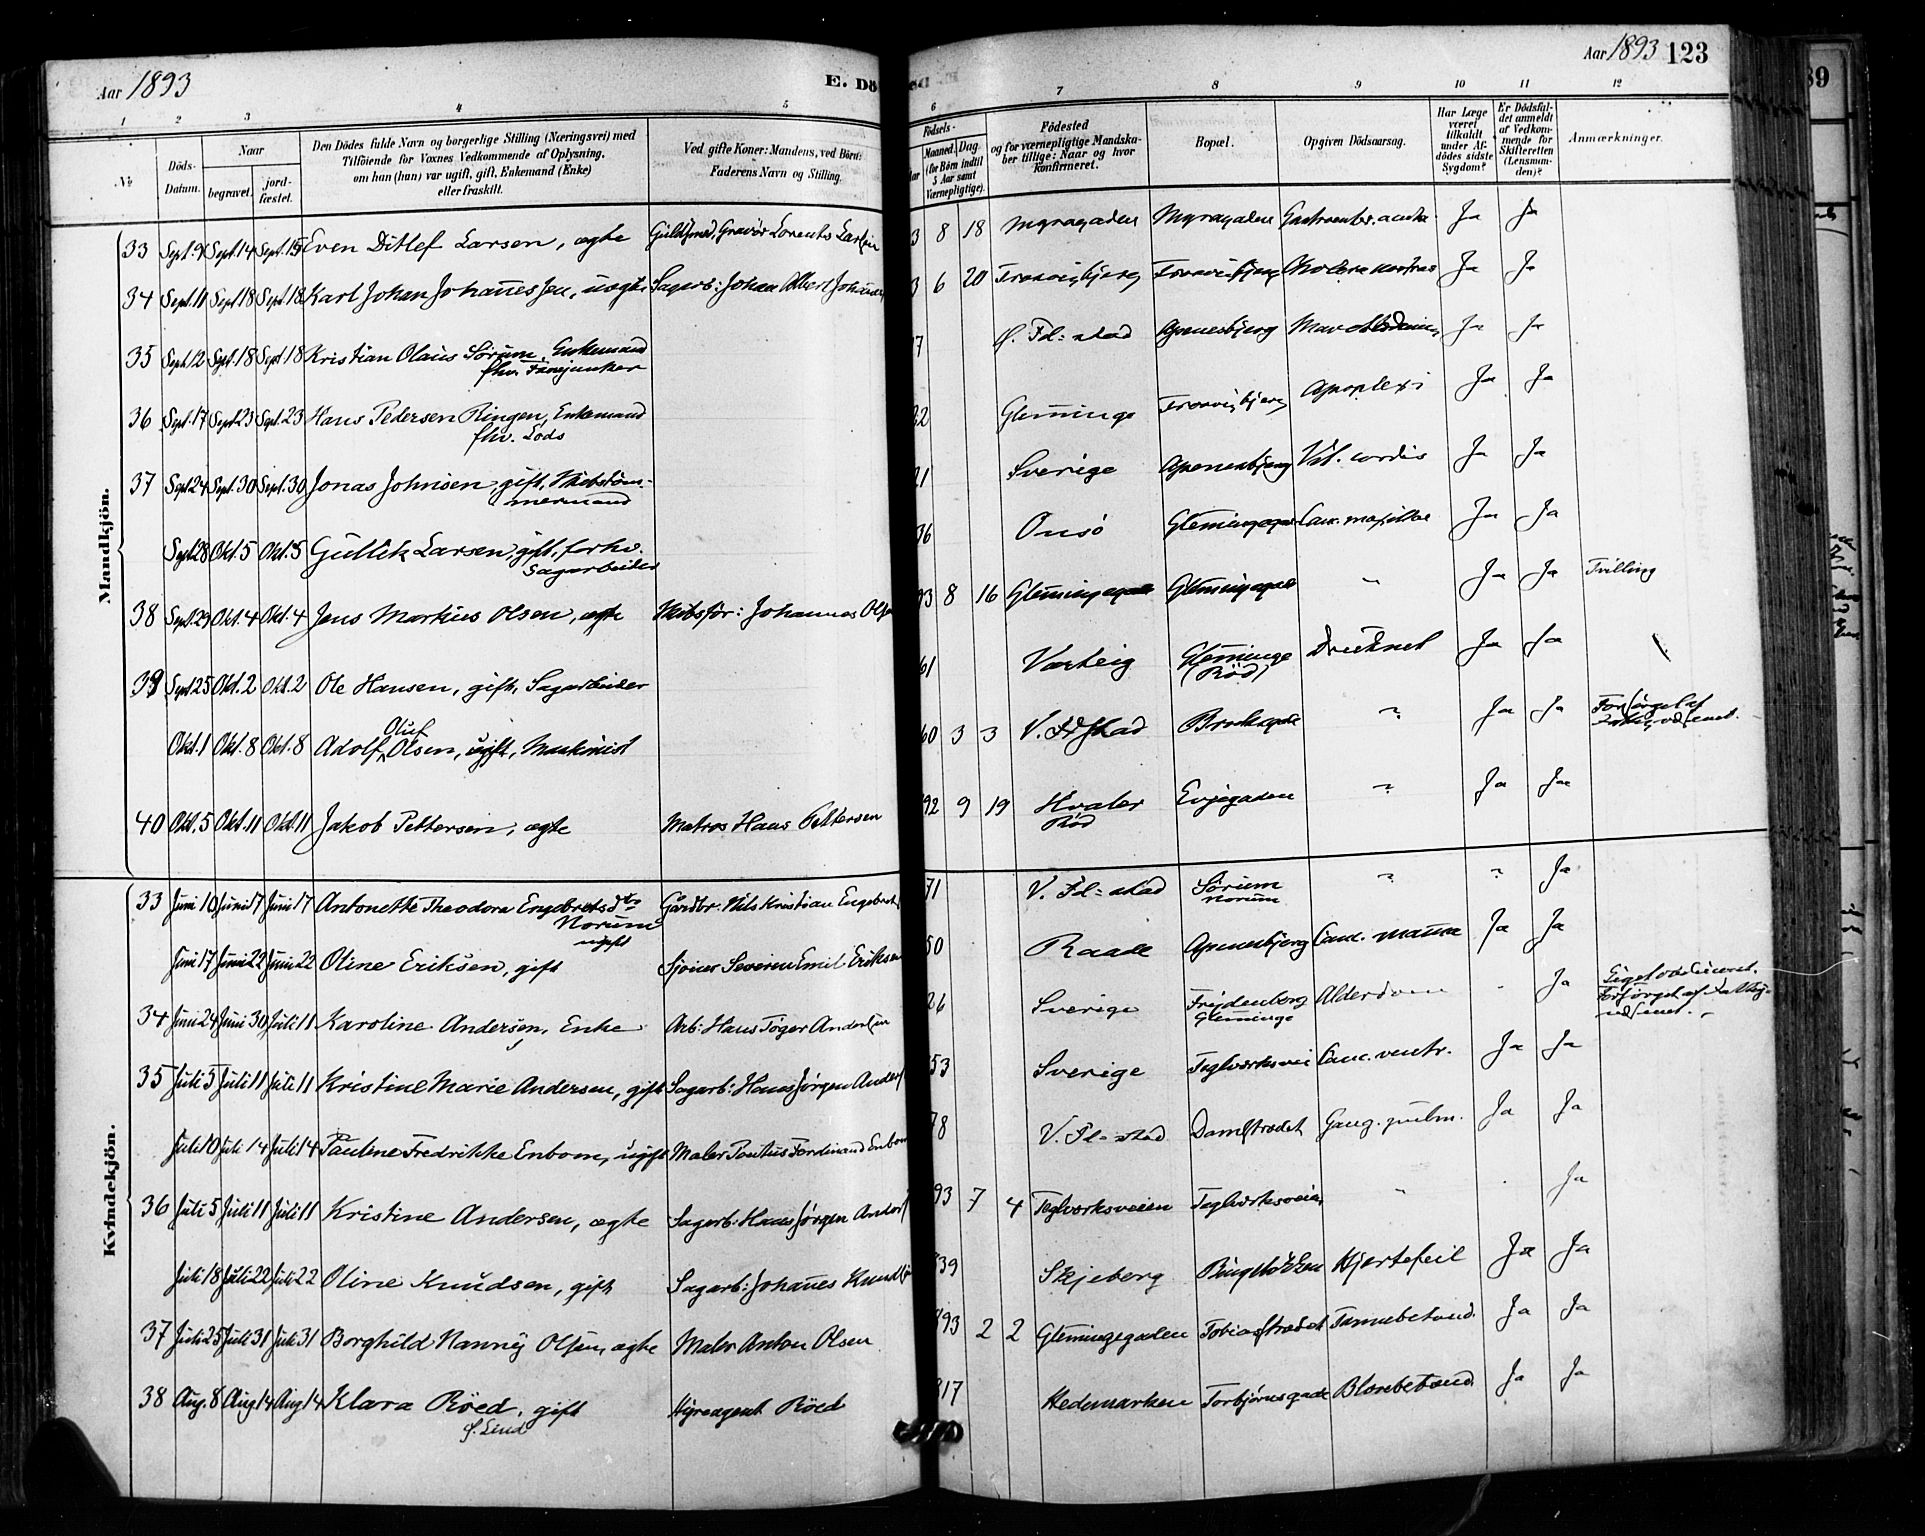 Aar 1893
E. Dö
Aar 1893 123
1 2 3 4 5 6 7 8 9 10 11 12
No
Döds-
Datum.
Naar
begravet.
jord-
fæstet.
Den Dödes fulde Navn og borgerlige Stilling (Næringsvei) med
Tilföiende for Voxnes Vedkommende af Oplysning,
om han (hun) var ugift, gift, Enkemand (Enke)
eller fraskilt.
Ved gifte Koner: Mandens, ved Börn:
Faderens Navn og Stilling.
Födsels-
Maaned. Dag.
(for Börn indtil
5 Aar samt
Værnepligtige).
Födested
og for værnepligtige Mandska-
ber tillige: Naar og hvor
Konfirmeret.
Bopæl.
Opgiven Dödsaarsag.
Har Læge
været
tilkaldt
under Af-
dödes sidste
Sygdom?
Er Dödsfal-
det anmeldt
af Vedkom-
mende for
Skifteretten
(Lensman-
den)?
Anmærkninger.
Mandkjön.
33 Sept. 9 Sept. 14 Sept. 15 Even Ditlef Larsen, ægte Guldsmed, Gravör Lorents Larsen 3 8 18 Myragaden Myragaden Ja Ja
34 Sept. 11 Sept. 18 Sept. 18 Karl Johan Johannessen, uægte Sagarb: Johan Albert Johannes 3 6 20 Trosvigbjerg Trosvigbjerg Cholera nostras Ja Ja
35 Sept. 12 Sept. 18 Sept. 18 Kristian Olaus Sörum, Enkemand
fhv. Fanejunker
7 Ø. Fd=stad Apenesbjerg Ja Ja
36 Sept. 17 Sept. 23 Sept. 23 Hans Pedersen Ringen, Enkemand
fhv. Lods
22 Glemminge Trosvigbjerg Apoplexi Ja Ja
37 Sept. 24 Sept. 30 Sept. 30 Jonas Johnsen, gift, Skibstöm-
mermand
21 Sverige Apenesbjerg Vit. cordis Ja Ja
Sept. 28 Okt. 5 Okt. 5 Gullik Larsen, gift, forhv.
Sagarbeider
36 Onsö Glemmingegade Canc. maxillae Ja Ja
38 Sept. 29 Okt. 4 Okt. 4 Jens Markus Olsen, ægte Skibsför: Johannes Olsen 93 8 16 Glemmingegade Glemmingegade " Ja Ja Tvilling
39 Sept. 25 Okt. 2 Okt. 2 Ole Hansen, gift, Sagarbeider 61 Varteig Glemminge
(Röd)
Druknet Ja Ja
Okt. 1 Okt. 8 Okt. 8 Adolf Oluf Olsen, ugift, Maskinist 60 3 3 V. Fdstad Brohsgade ? Ja Ja Forsörget af
Fattigvæsenet.
40 Okt. 5 Okt. 11 Okt. 11 Jakob Pettersen, ægte Matros Hans Pettersen 92 9 19 Hvaler
Röd
Evjegaden ? Ja Ja
Kvindekjön.
33 Juni 10 Juni 17 Juni 17 Antonette Theodora Engebretsdtr
Norum
ugift
Gårdbr. Nils Kristian Engebrets 71 V. Fd=stad Sörum
Norum
? ? Ja
Juni 17 Juni 22 Juni 22 Oline Eriksen, gift Sjöner Severin Emil Eriksen 50 Raade Apenesbjerg Canc. mamma Ja Ja
34 Juni 24 Juni 30 Juli 11 Karoline Andersen, Enke Arb: Hans Töger Andersen 26 Sverige Frydenberg
Glemminge
Alderdom - Ja
Forsörget af Fattig-
væsenet.
35 Juli 5 Juli 11 Juli 11 Kristine Marie Andersen, gift Sagarb: Hans Jörgen Anders 53 Sverige Teglværksvei Canc. ventr. Ja Ja
Juli 10 Juli 14 Juli 14 Pauline Fredrikke Enbom, ugift Maler Pontus Ferdinand Enbom 78 V. Fd=stad Damstrædet Gang. pulm. Ja Ja
36 Juli 5 Juli 11 Juli 11 Kristine Andersen, ægte Sagarb: Hans Jörgen Anders 93 7 4 Teglværksveien Teglværksveien " - Ja
Juli 18 Juli 22 Juli 22 Oline Knudsen, gift Sagarb: Johannes Knuds 39 Skjeberg Hjertefeil Ja Ja
37 Juli 25 Juli 31 Juli 31 Borghild Nanny Olsen, ægte Maler Anton Olsen 93 2 2 Glemmingegaden Tobiasstrædet Ja Ja
38 Aug. 8 Aug. 14 Aug. 14 Klara Röed, gift
f. Lind
Hyreagent Röed 17 Hedemarken Torbjörnsgade Blærebetænd. Ja Ja